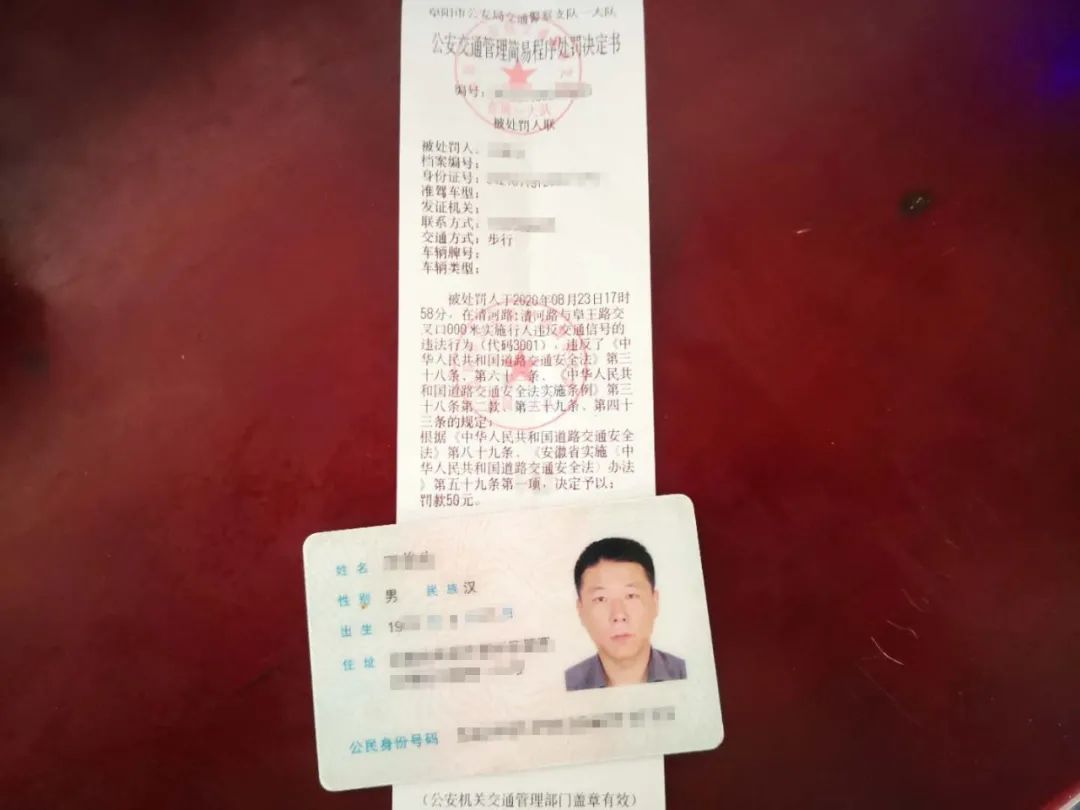 阜阳市公安局交通警察支队一大队
公安交通管理简易程序处罚决定书
编号:
被处罚人联
被处罚人:
档案编号:
身份证号:
准驾车型:
发证机关:
联系方式:
交通方式: 步行
车辆牌号:
车辆类型:
被处罚人于2020年08月23日17时
58分, 在清河路:清河路与阜王路交
叉口000米实施行人违反交通信号的
违法行为(代码3001), 违反了《中
华人民共和国道路交通安全法》第三
十八条、第六十一条、《中华人民共
和国道路交通安全法实施条例》第三
十八条第二款、第三十九条、第四十
三条的规定;
根据《中华人民共和国道路交通安全
法》第八十九条、《安徽省实施〈中
华人民共和国道路交通安全法〉办法
》第五十九条第一项, 决定予以:
罚款50元。
姓名
性别 男 民族 汉
出生 19 日
住址
公民身份号码
(公安机关交通管理部门盖章有效)